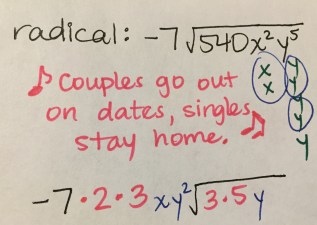 radical: -7√540x²y⁵
x y
x y
♪ Couples go out
y
on dates, singles
y
stay home. ♫
y
-7·2·3xy²√3·5y